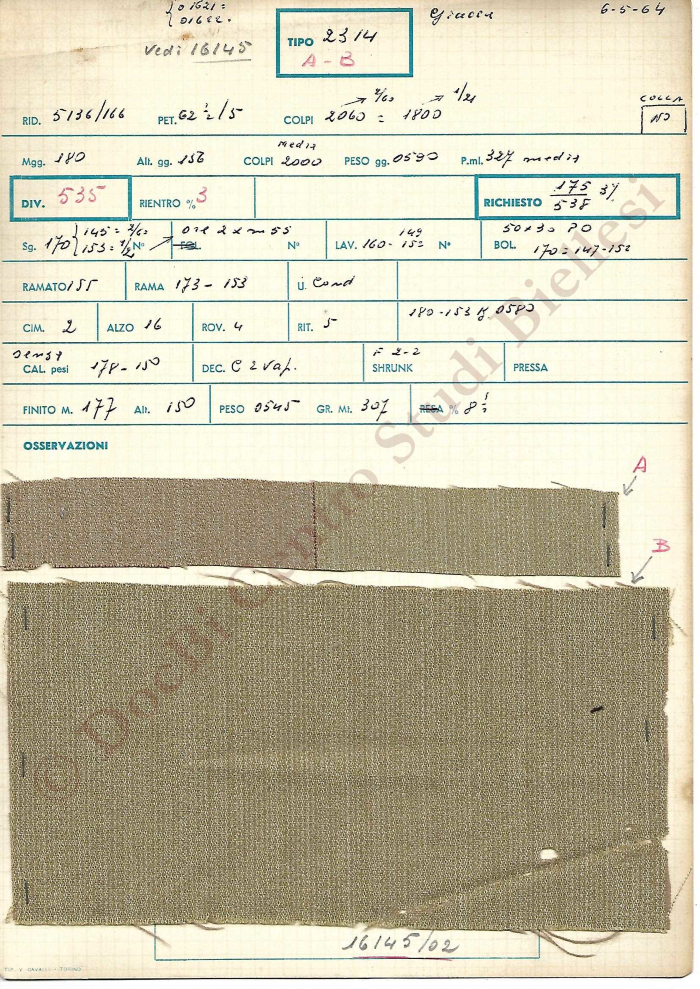 01621=
01622.
Giacca
6-5-64
Vedi 16145
TIPO 2314
A - B
2/60 1/21
COLLA
NO
RID. 5136/166 PET. 62 1/2/5 COLPI 2060 = 1800
Media
Mgg. 180 Alt. gg. 156 COLPI 2000 PESO gg. 0590 P.ml. 327 media
DIV. 535 RIENTRO % 3 RICHIESTO 175/538 3%
Sg. 170 145 = 2/60 153 = 1/2 N° FOL. Ore 2 x m 55 N° LAV. 160-152 149 N° BOL. 50x30 PO 170=147-152
RAMATO 155 RAMA 173-153 U. Cond
CIM. 2 ALZO 16 ROV. 4 RIT. 5 180-153 Kg 0580
senza
CAL. pesi 178-150 DEC. C 2 Vap. F 2-2 SHRUNK PRESSA
FINITO M. 177 Alt. 150 PESO 0545 GR. Mt. 307 RESA % 8 1/2
OSSERVAZIONI
A
B
© DocBi Centro Studi Biellesi
16145/02
TIP. V. CAVALLI - TORINO